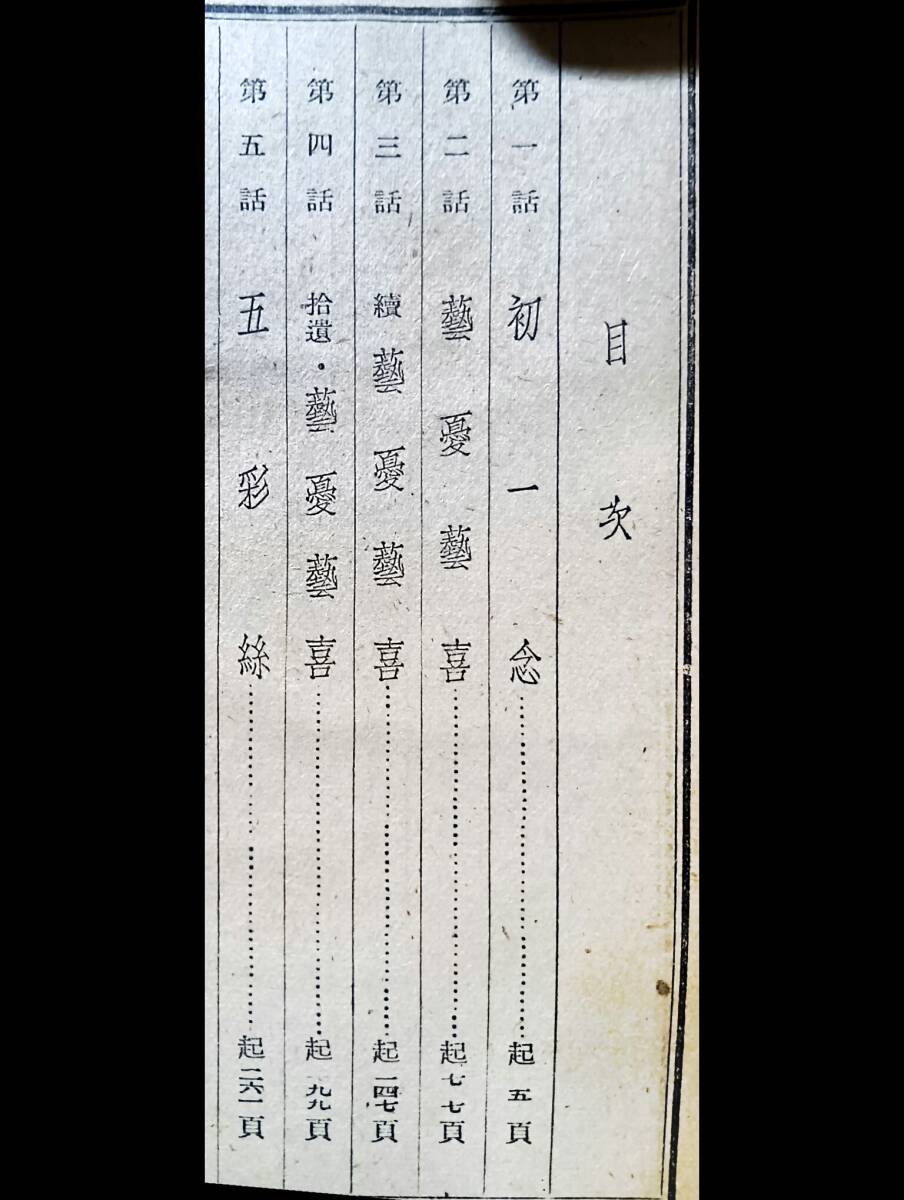 目次
第一話 初一念………起五頁
第二話 藝憂藝喜………起七七頁
第三話 續藝憂藝喜………起一四七頁
第四話 拾遺・藝憂藝喜………起一九九頁
第五話 五彩絲………起二六一頁